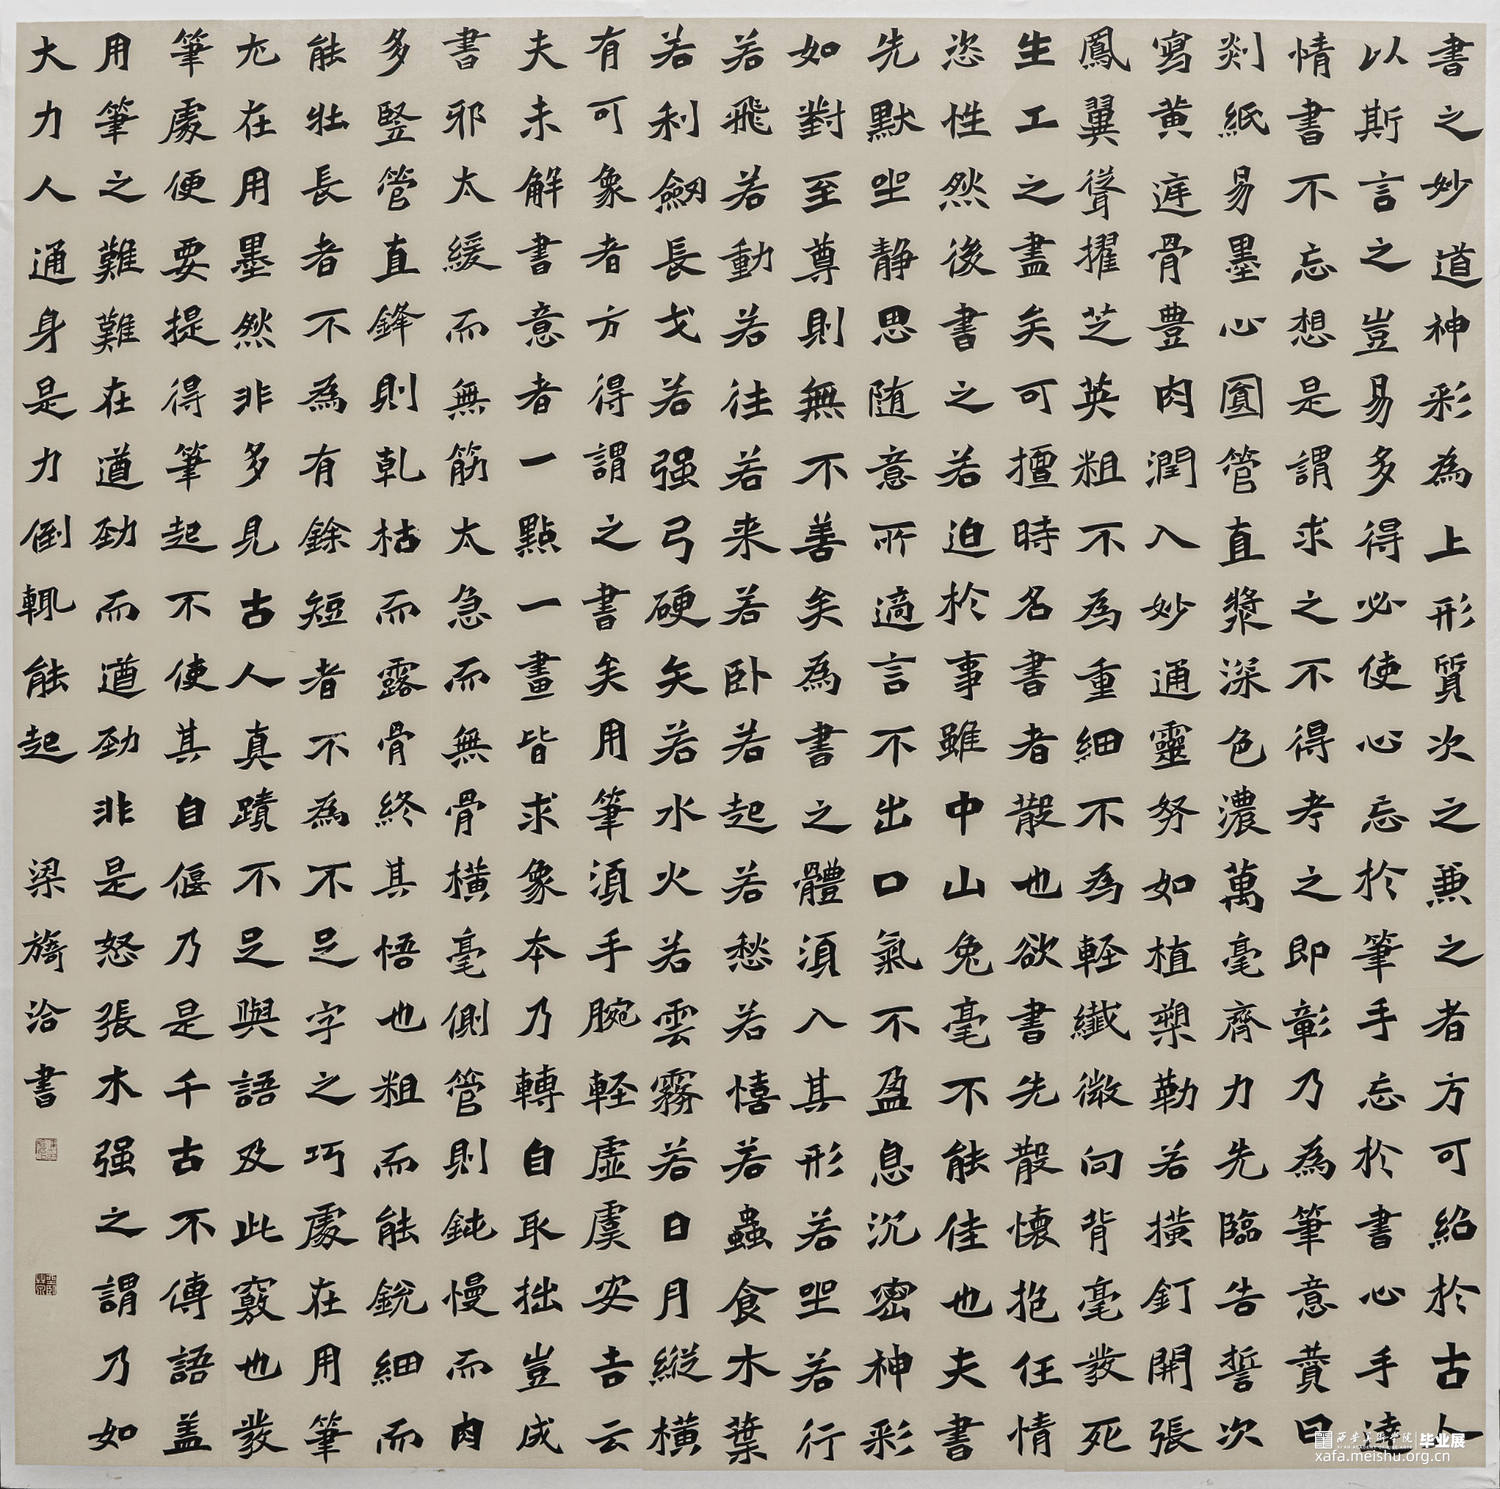 書之妙道神彩為上形質次之兼之者方可紹於古人
以斯言之豈易多得必使心忘於筆手忘於書心手達
情書不忘想是謂求之不得考之即彰乃為筆意贊曰
剡紙易墨心圓管直漿深色濃萬毫齊力先臨告誓次
寫黃庭骨豊肉潤入妙通靈努如植槊勒若橫釘開張
鳳翼聳擢芝英粗不為重細不為軽纖微向背毫發死
生工之盡矣可擅時名書者散也欲書先散懷抱任情
恣性然後書之若迫於事雖中山兔毫不能佳也夫書
先默坐静思随意所適言不出口氣不盈息沉密神彩
如對至尊則無不善矣為書之體須入其形若坐若行
若飛若動若往若来若卧若起若愁若憘若蟲食木葉
若利劔長戈若强弓硬矢若水火若雲霧若日月縱橫
有可象者方得謂之書矣用筆須手腕軽虛虞安吉云
夫未解書意者一點一畫皆求象本乃轉自取拙豈成
書邪太緩而無筋太急而無骨橫毫側管則鈍慢而肉
多竪管直鋒則乹枯而露骨終其悟也粗而能銳細而
能壮長者不為有餘短者不為不足字之巧處在用筆
尤在用墨然非多見古人真蹟不足與語及此竅也發
筆處便要提得筆起不使其自偃乃是千古不傳語盖
用筆之難難在遒劲而遒劲非是怒張木强之謂乃如
大力人通身是力倒輒能起
梁旖洽書
西安美術學院 毕业展
xafa.meishu.org.cn